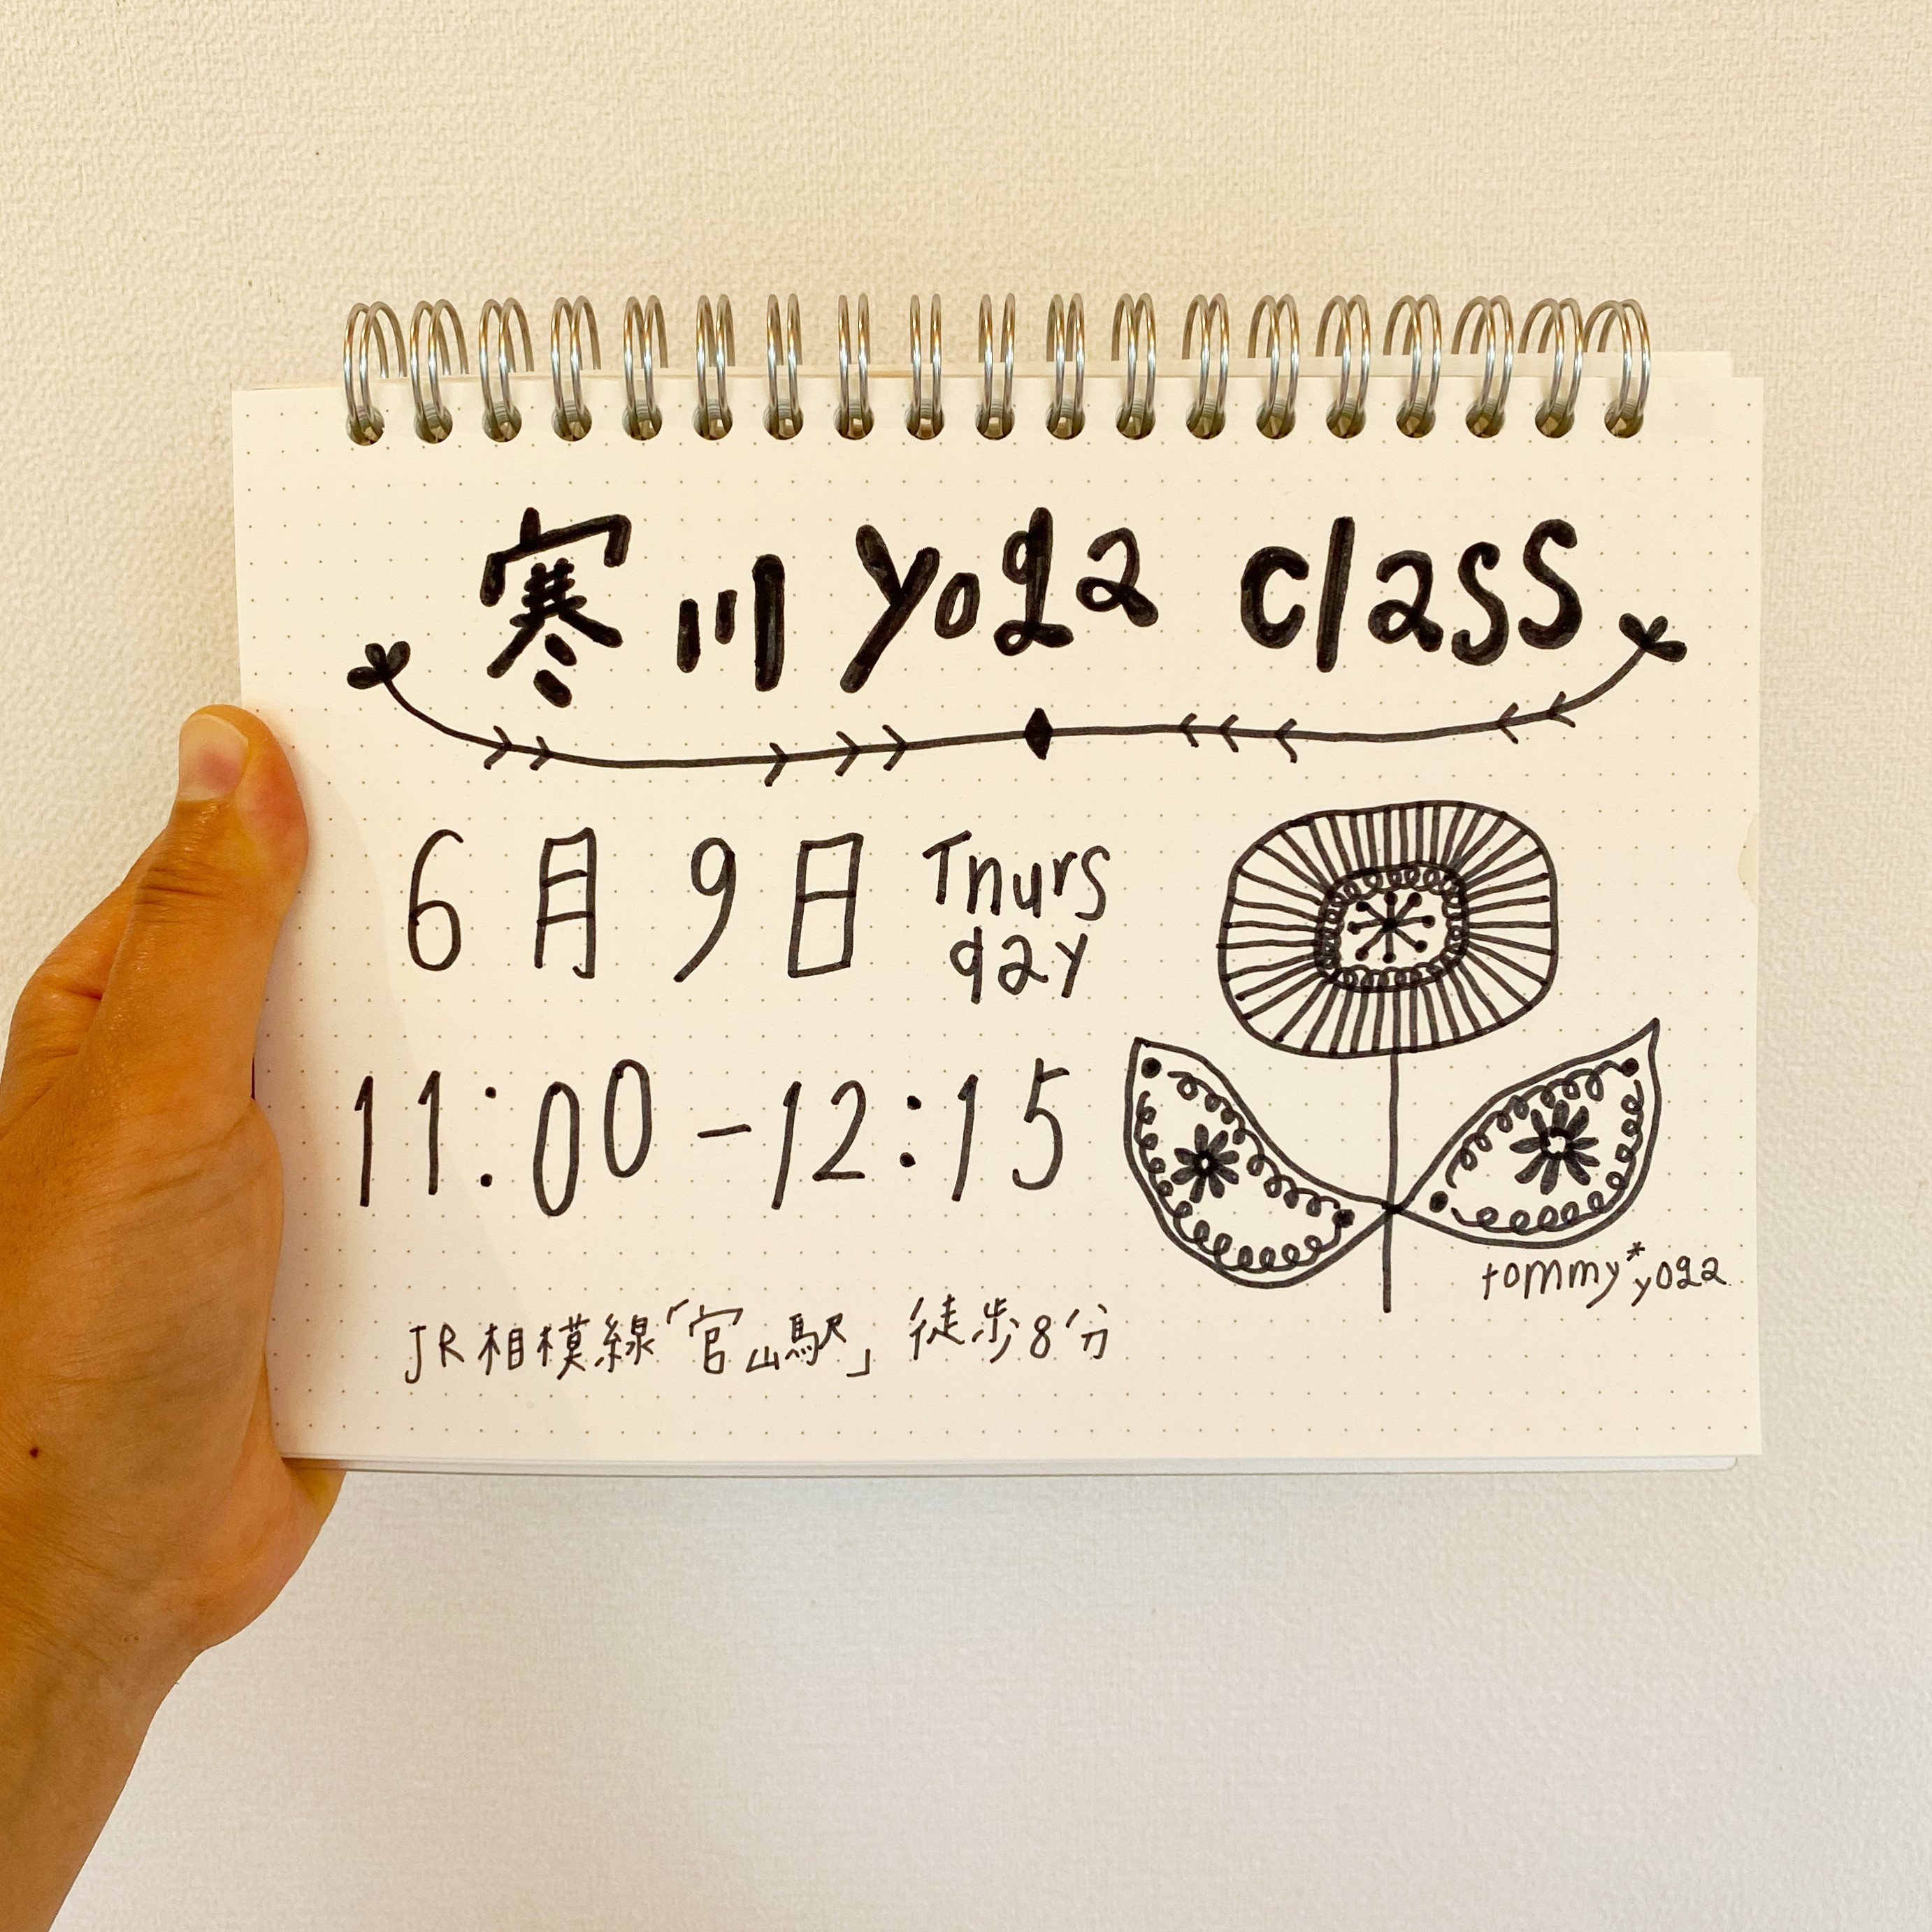 寒川 yoga class
6月9日 Thurs
day
11:00-12:15
tommy*yoga
JR相模線「宮山駅」徒歩8分